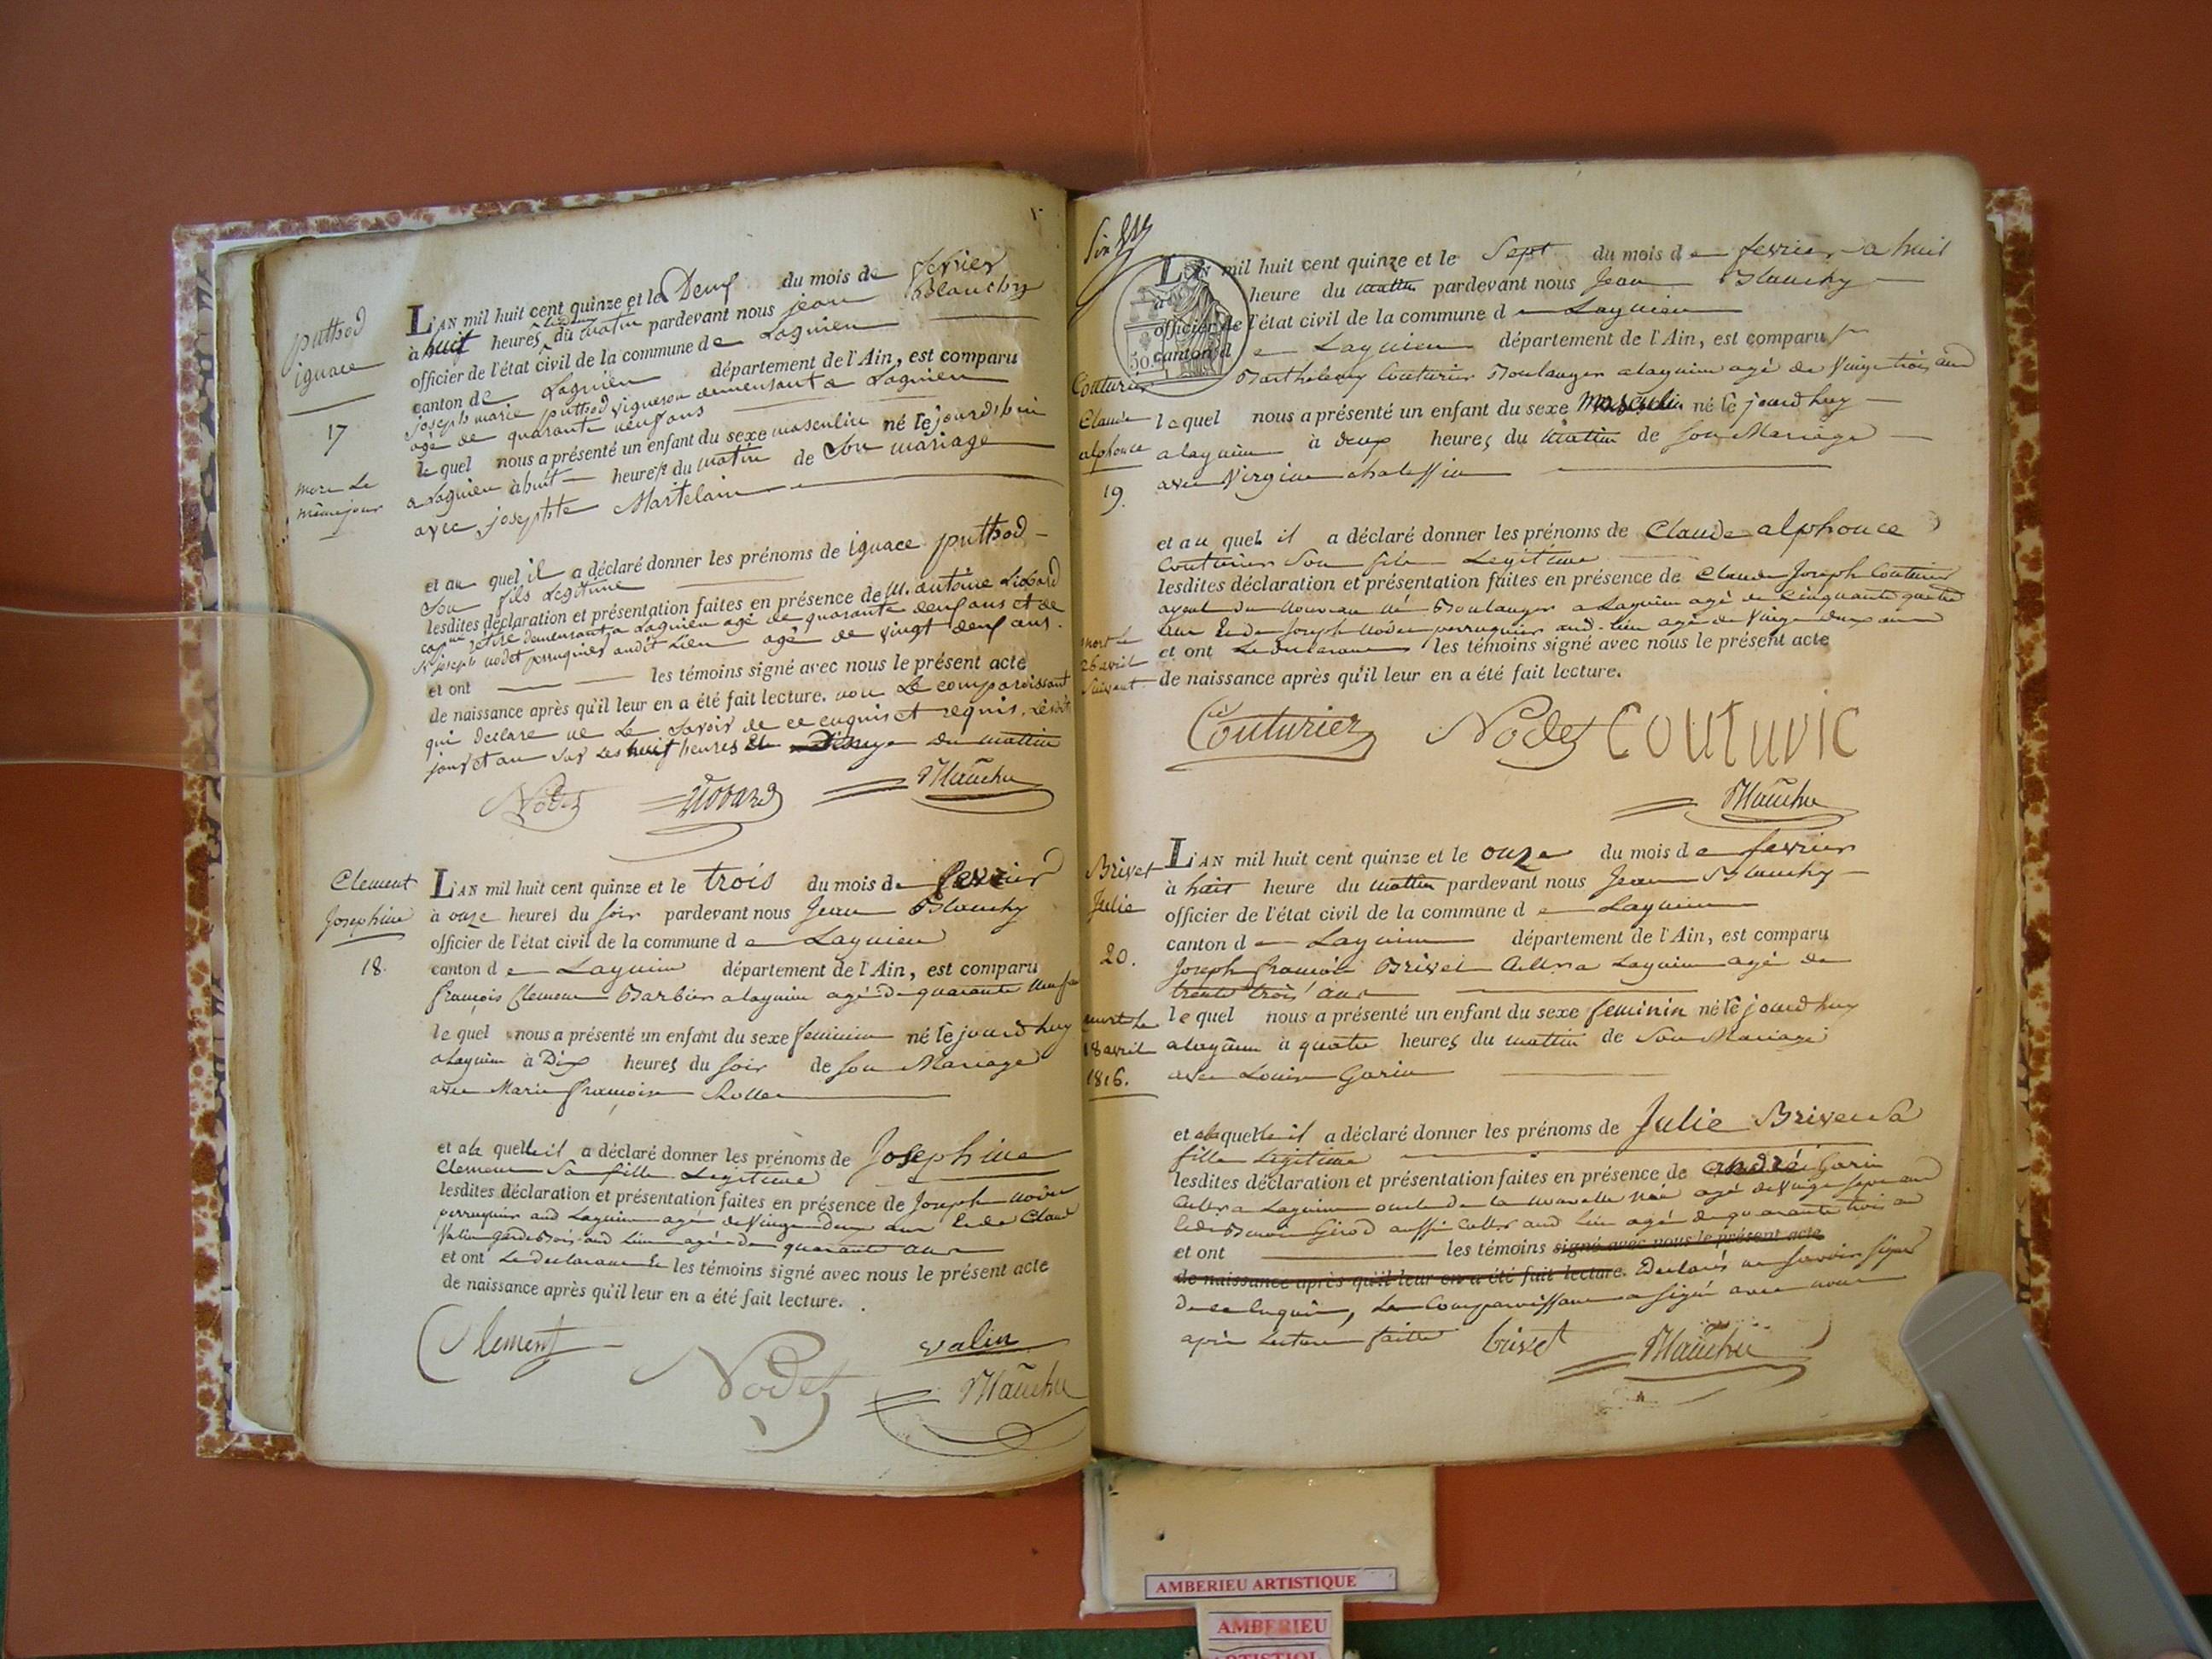 puthod
ignace
17
mort le
même jour
L'AN mil huit cent quinze et le Deux du mois de fevrier
à huit heures du matin pardevant nous jean Blanchy
officier de l'état civil de la commune de Lagnieu
canton de Lagnieu département de l'Ain, est comparu
joseph marie puthod vigneron demeurant a Lagnieu
agé de quarante neuf ans
le quel nous a présenté un enfant du sexe masculin né le jourdhui
a Lagnieu à huit heures du matin de Son mariage
avec josephte Martelain
et au quel il a déclaré donner les prénoms de ignace puthod
Son fils Legitime
lesdites déclaration et présentation faites en présence de M. antoine Liobard
demeurant a Lagnieu agé de quarante deux ans et de
Sr joseph nodet perruquier audit Lieu agé de vingt deux ans.
et ont les témoins signé avec nous le présent acte
de naissance après qu'il leur en a été fait lecture. non Le comparoissant
qui declare ne Le Savoir de ce enquis et requis. Lesdits
jour et an Sur Les huit heures du mattin
Nodet Liobard Blanchy
Clement
Josephine
18.
L'AN mil huit cent quinze et le trois du mois de fevrier
à onze heures du soir pardevant nous Jean Blanchy
officier de l'état civil de la commune de Lagnieu
canton de Lagnieu département de l'Ain, est comparu
françois Clement Barbier a lagnieu agé de quarante neuf ans
le quel nous a présenté un enfant du sexe feminin né le jourdhuy
a Lagnieu à Dix heures du soir de son Mariage
avec Marie françoise
et a la quelle il a déclaré donner les prénoms de Josephine
Clement Sa fille Legitime
lesdites déclaration et présentation faites en présence de Joseph nodet
perruquier aud Lagnieu agé de Vingt Deux ans et de Claude
Valin garde Bois aud lieu agé de quarante ans
et ont Le declarant et les témoins signé avec nous le présent acte
de naissance après qu'il leur en a été fait lecture.
Clement Nodet valin
Blanchy
30.
Couturier
Claude
alphonce
19.
mort le
26 avril
Suivant
L'AN mil huit cent quinze et le Sept du mois de fevrier a huit
heure du mattin pardevant nous Jean Blanchy
officier de l'état civil de la commune de Lagnieu
canton de Lagnieu département de l'Ain, est comparu Sr
Barthelemy Couturier Boulanger a lagnieu agé de Vingt trois ans
le quel nous a présenté un enfant du sexe Masculin né le jourdhuy
a lagnieu à deux heures du matin de son Mariage
avec Virginie chalessin
et au quel il a déclaré donner les prénoms de Claude alphonce
Couturier Son fils Legitime
lesdites déclaration et présentation faites en présence de Claude Joseph Couturier
ayeul du Nouveau né Boulanger a Lagnieu agé de Cinquante quatre
ans et de Joseph Nodet perruquier aud. lieu agé de Vingt Deux ans
et ont Le declarant les témoins signé avec nous le présent acte
de naissance après qu'il leur en a été fait lecture.
Couturier Nodet
Blanchy
Brivet
Julie
20.
mort le
18 avril
1816.
L'AN mil huit cent quinze et le onze du mois de fevrier
à huit heure du mattin pardevant nous Jean Blanchy
officier de l'état civil de la commune de Lagnieu
canton de Lagnieu département de l'Ain, est comparu
Joseph françois Brivet Cultr a Lagnieu agé de
trente trois ans
le quel nous a présenté un enfant du sexe feminin né le jourdhuy
a lagnieu à quatre heures du mattin de Son Mariage
avec Louise Garin
et a la quelle il a déclaré donner les prénoms de Julie Brivet Sa
fille Legitime
lesdites déclaration et présentation faites en présence de andré Garin
Cultr a Lagnieu oncle de la Nouvelle Née agé de Vingt sept ans
et de Girod aussi Cultr aud lieu agé de quarante trois ans
et ont les témoins signé avec nous le présent acte
de naissance après qu'il leur en a été fait lecture. Declarés ne Savoir signer
de ce Enquis, Le Comparoissant a signé avec nous
après Lecture faitte brivet Blanchy
AMBERIEU ARTISTIQUE
AMBERIEU
ARTISTIQU